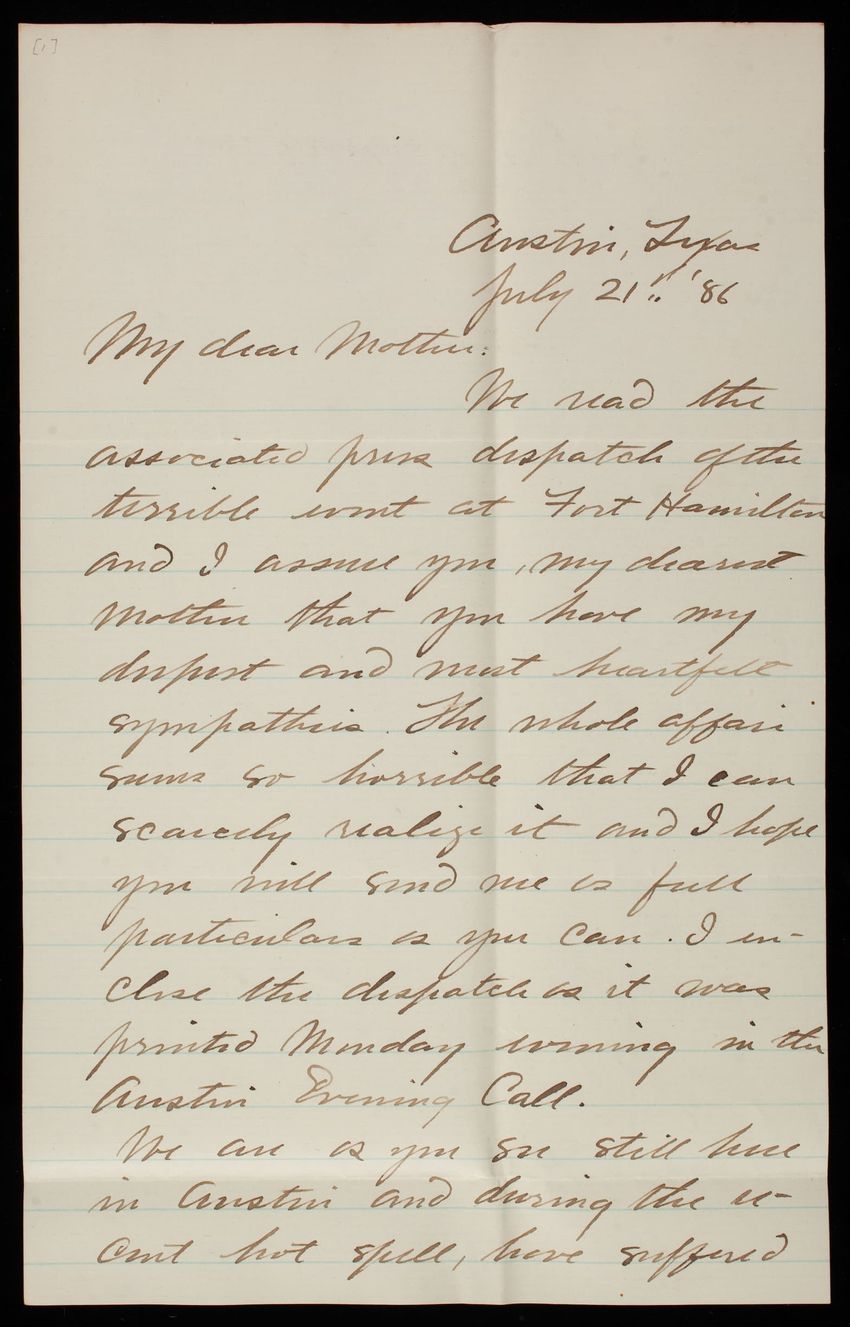 [1]
Austin, Texas
July 21" '86
My dear Mother:
We read the
associated press dispatch of the
terrible event at Fort Hamilton
and I assure you, my dearest
Mother that you have my
deepest and most heartfelt
sympathies. The whole affair
seems so horrible that I can
scarcely realize it and I hope
you will send me as full
particulars as you can. I en-
close the dispatch as it was
printed Monday evening in the
Austin Evening Call.
We are as you see still here
in Austin and during the re-
cent hot spell, have suffered